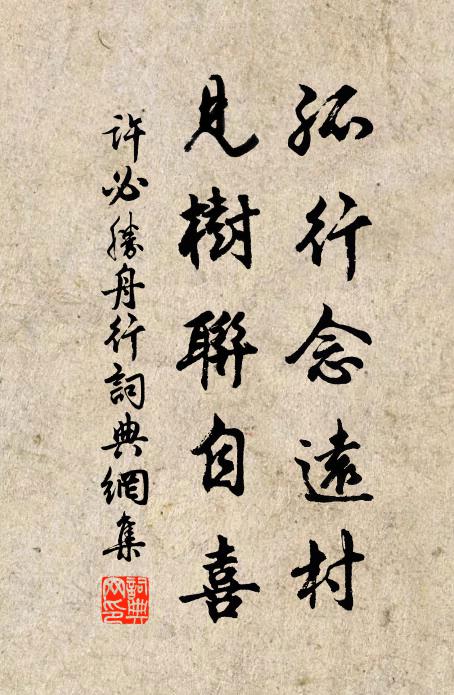 孤行念遠村
見樹聯自喜
許必勝舟行詞典網集
詞典網印